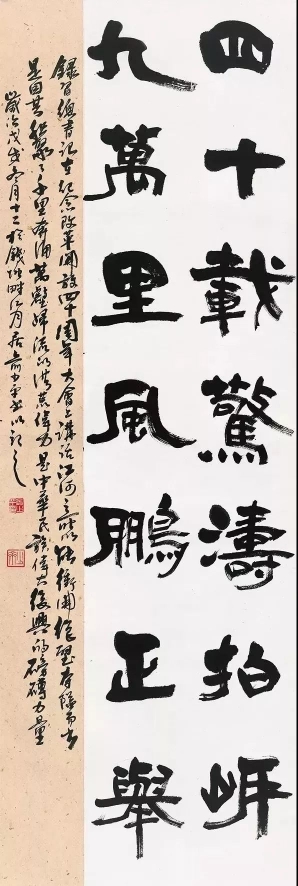 四十載驚濤拍岸
九萬里風鵬正舉
錄習總書記在紀念改革開放四十周年大會上講話江河之所以能衝開絕壁奪隘而出
是因其積聚了千里奔涌萬壑歸流的洪荒偉力是中華民族偉大復興的磅礴力量
歲次戊戌冬月十二於錢塘畔月居書以記之